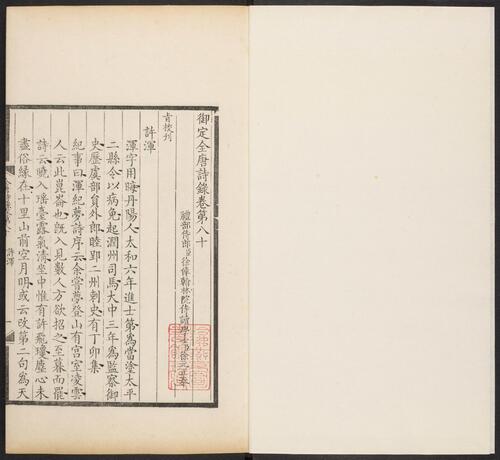 御定全唐詩錄卷第八十
禮部侍郎臣徐倬翰林院侍讀學士臣徐元正奉
旨校刊
許渾
渾字用晦丹陽人太和六年進士第為當塗太平
二縣令以病免起潤州司馬大中三年為監察御
史歷虞部員外郎睦郢二州刺史有丁卯集
紀事曰渾紀夢詩序云余嘗夢登山有宮室淩雲
人云此崑崙也旣入見數人方飲招之至暮而罷
詩云曉入瑤臺露氣清坐中惟有許飛瓊塵心未
盡俗緣在十里山前空月明或云改第二句為天
許渾
一